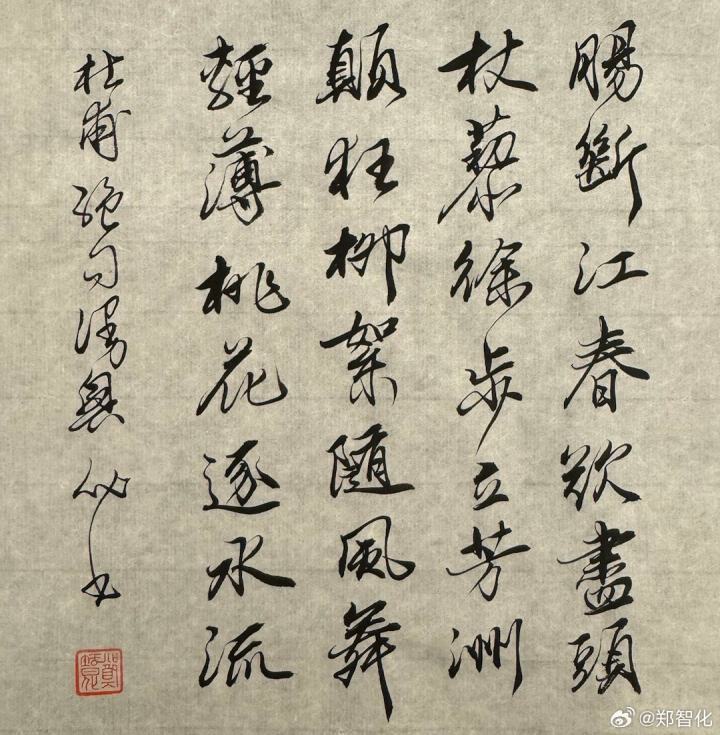 腸斷江春欲盡頭
杖藜徐步立芳洲
顛狂柳絮隨風舞
輕薄桃花逐水流
杜甫絕句漫興
@郑智化